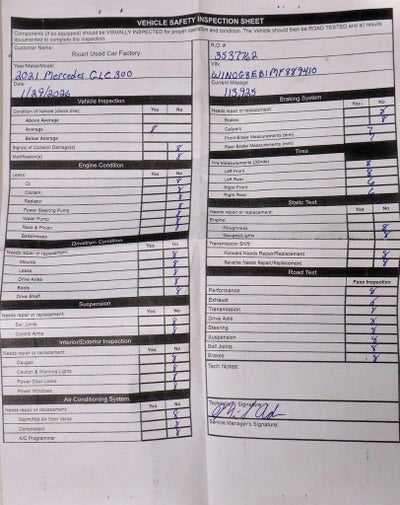 VEHICLE SAFETY INSPECTION SHEET
Components (if so equipped) should be VISUALLY INSPECTED for proper operation and condition. The Vehicle should then be ROAD TESTED and all results
documented to complete the inspection.
Customer Name:
Ricart Used Car Factory
Year/Make/Model
2021 Mercedes GLC 300
Date
1/29/2026
Vehicle Inspection
Condition of vehicle (check one) Yes No
Above Average
Average
Below Average
Sign(s) of Collision Damage(s)
Modification(s)
Engine Condition
Leaks: Yes No
Oil
Coolant
Radiator
Power Steering Pump
Water Pump
Rack & Pinion
Belts/Hoses
Drivetrain Condition
Needs repair or replacement: Yes No
Mounts
Leaks
Drive Axles
Boots
Drive Shaft
Suspension
Needs repair or replacement: Yes No
Ball Joints
Control Arms
Interior/Exterior Inspection
Needs repair or replacement: Yes No
Gauges
Caution & Warning Lights
Power Door Locks
Power Windows
Air Conditioning System
Needs repair or replacement: Yes No
Compressor
A/C Programmer
R.O. #
3537762
VIN
Current Mileage
113,925
Braking System
Needs repair or replacement: Yes No
Brakes
Calipers
Front Brake Measurements (mm) 7
Rear Brake Measurements (mm) 7
Tires
Tire Measurements (32nds)
Left Front
Left Rear
Right Front
Right Rear
Static Test
Needs repair or replacement: Yes No
Engine:
Roughness
Transmission Shift:
Forward Needs Repair/Replacement
Reverse Needs Repair/Replacement
Road Test
Pass Inspection
Performance
Exhaust
Transmission
Drive Axle
Steering
Suspension
Ball Joints
Brakes
Tech Notes:
Technician's Signature:
Service Manager's Signature: